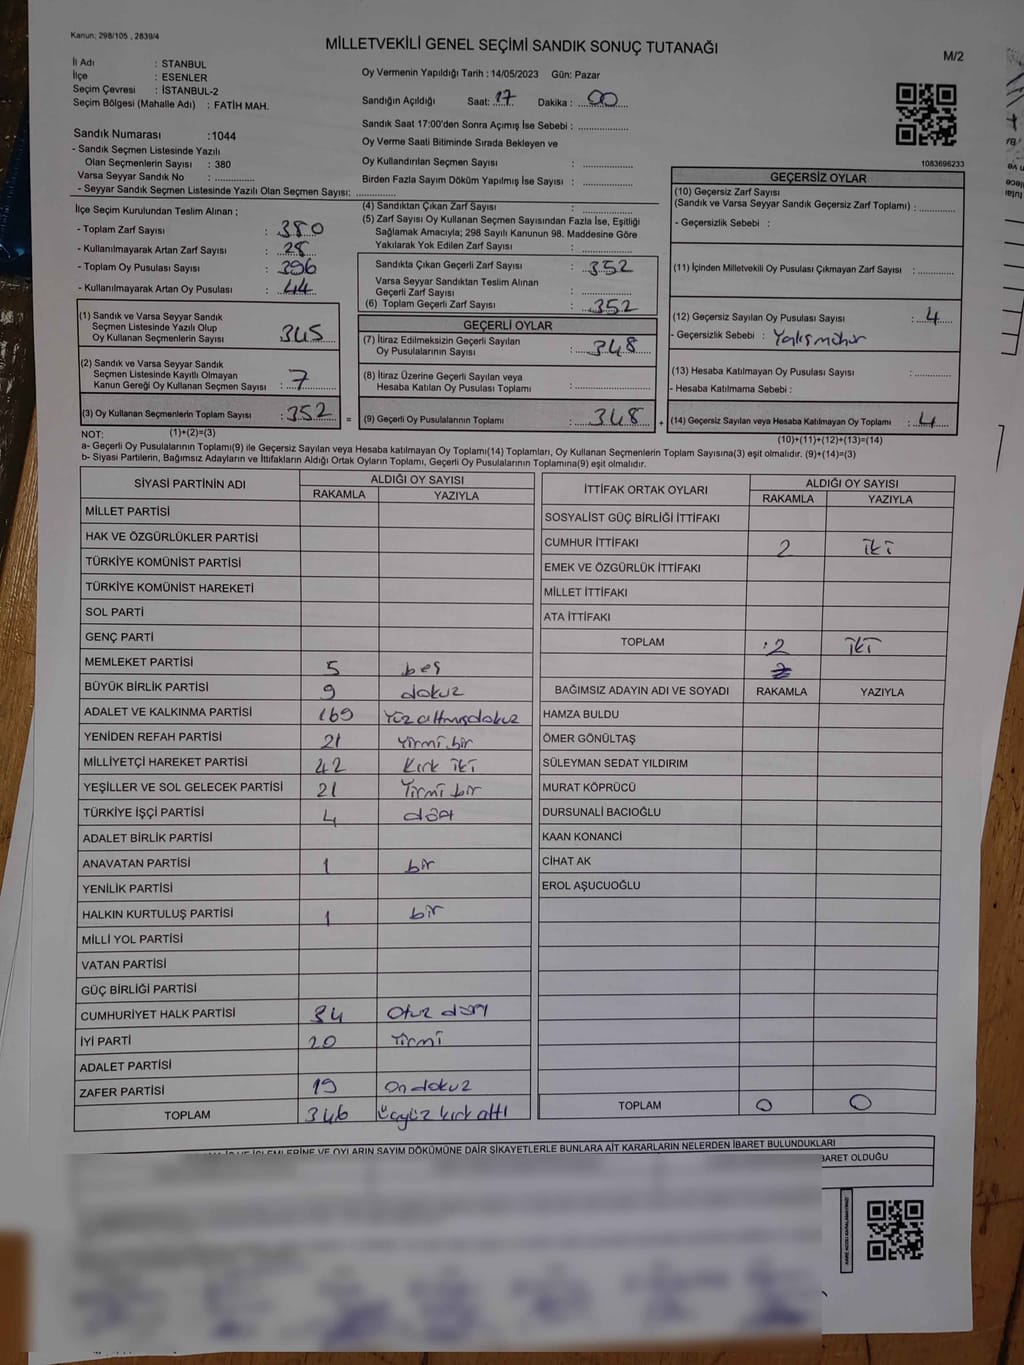 Kanun: 298/105 , 2839/4
MİLLETVEKİLİ GENEL SEÇİMİ SANDIK SONUÇ TUTANAĞI
M/2
İl Adı : STANBUL
İlçe : ESENLER
Seçim Çevresi : İSTANBUL-2
Seçim Bölgesi (Mahalle Adı) : FATİH MAH.
Oy Vermenin Yapıldığı Tarih : 14/05/2023 Gün: Pazar
Sandığın Açıldığı Saat: 17 Dakika : 00
Sandık Saat 17:00'den Sonra Açımış İse Sebebi :
Oy Verme Saati Bitiminde Sırada Bekleyen ve
Oy Kullandırılan Seçmen Sayısı :
Birden Fazla Sayım Döküm Yapılmış İse Sayısı :
1083696233
Sandık Numarası :1044
- Sandık Seçmen Listesinde Yazılı
Olan Seçmenlerin Sayısı : 380
Varsa Seyyar Sandık No :
- Seyyar Sandık Seçmen Listesinde Yazılı Olan Seçmen Sayısı:
İlçe Seçim Kurulundan Teslim Alınan ;
- Toplam Zarf Sayısı : 380
- Kullanılmayarak Artan Zarf Sayısı : 28
- Toplam Oy Pusulası Sayısı : 396
- Kullanılmayarak Artan Oy Pusulası : 44
(1) Sandık ve Varsa Seyyar Sandık
Seçmen Listesinde Yazılı Olup
Oy Kullanan Seçmenlerin Sayısı 345
(2) Sandık ve Varsa Seyyar Sandık
Seçmen Listesinde Kayıtlı Olmayan
Kanun Gereği Oy Kullanan Seçmen Sayısı : 7
(3) Oy Kullanan Seçmenlerin Toplam Sayısı : 352
(1)+(2)=(3)
(4) Sandıktan Çıkan Zarf Sayısı :
(5) Zarf Sayısı Oy Kullanan Seçmen Sayısından Fazla İse, Eşitliği
Sağlamak Amacıyla; 298 Sayılı Kanunun 98. Maddesine Göre
Yakılarak Yok Edilen Zarf Sayısı :
Sandıkta Çıkan Geçerli Zarf Sayısı : 352
Varsa Seyyar Sandıktan Teslim Alınan
Geçerli Zarf Sayısı :
(6) Toplam Geçerli Zarf Sayısı : 352
GEÇERLİ OYLAR
(7) İtiraz Edilmeksizin Geçerli Sayılan
Oy Pusulalarının Sayısı : 348
(8) İtiraz Üzerine Geçerli Sayılan veya
Hesaba Katılan Oy Pusulası Toplamı :
= (9) Geçerli Oy Pusulalarının Toplamı : 348 +
GEÇERSİZ OYLAR
(10) Geçersiz Zarf Sayısı
(Sandık ve Varsa Seyyar Sandık Geçersiz Zarf Toplamı) :
- Geçersizlik Sebebi :
(11) İçinden Milletvekili Oy Pusulası Çıkmayan Zarf Sayısı :
(12) Geçersiz Sayılan Oy Pusulası Sayısı : 4
- Geçersizlik Sebebi : Yalış mühür
(13) Hesaba Katılmayan Oy Pusulası Sayısı :
- Hesaba Katılmama Sebebi :
(14) Geçersiz Sayılan veya Hesaba Katılmayan Oy Toplamı : 4
(10)+(11)+(12)+(13)=(14)
NOT:
a- Geçerli Oy Pusulalarının Toplamı(9) ile Geçersiz Sayılan veya Hesaba katılmayan Oy Toplamı(14) Toplamları, Oy Kullanan Seçmenlerin Toplam Sayısına(3) eşit olmalıdır. (9)+(14)=(3)
b- Siyasi Partilerin, Bağımsız Adayların ve İttifakların Aldığı Ortak Oyların Toplamı, Geçerli Oy Pusulalarının Toplamına(9) eşit olmalıdır.
SİYASİ PARTİNİN ADI ALDIĞI OY SAYISI
RAKAMLA YAZIYLA
MİLLET PARTİSİ
HAK VE ÖZGÜRLÜKLER PARTİSİ
TÜRKİYE KOMÜNİST PARTİSİ
TÜRKİYE KOMÜNİST HAREKETİ
SOL PARTİ
GENÇ PARTİ
MEMLEKET PARTİSİ 5 beş
BÜYÜK BİRLİK PARTİSİ 9 dokuz
ADALET VE KALKINMA PARTİSİ 169 Yüzaltmışdokuz
YENİDEN REFAH PARTİSİ 21 Yirmi bir
MİLLİYETÇİ HAREKET PARTİSİ 42 Kırk iki
YEŞİLLER VE SOL GELECEK PARTİSİ 21 Yirmi bir
TÜRKİYE İŞÇİ PARTİSİ 4 dört
ADALET BİRLİK PARTİSİ
ANAVATAN PARTİSİ 1 bir
YENİLİK PARTİSİ
HALKIN KURTULUŞ PARTİSİ 1 bir
MİLLİ YOL PARTİSİ
VATAN PARTİSİ
GÜÇ BİRLİĞİ PARTİSİ
CUMHURİYET HALK PARTİSİ 34 Otuz dört
İYİ PARTİ 20 Yirmi
ADALET PARTİSİ
ZAFER PARTİSİ 19 On dokuz
TOPLAM 346 Üçyüz kırk altı
İTTİFAK ORTAK OYLARI ALDIĞI OY SAYISI
RAKAMLA YAZIYLA
SOSYALİST GÜÇ BİRLİĞİ İTTİFAKI
CUMHUR İTTİFAKI 2 iki
EMEK VE ÖZGÜRLÜK İTTİFAKI
MİLLET İTTİFAKI
ATA İTTİFAKI
TOPLAM 2 iki
2
BAĞIMSIZ ADAYIN ADI VE SOYADI RAKAMLA YAZIYLA
HAMZA BULDU
ÖMER GÖNÜLTAŞ
SÜLEYMAN SEDAT YILDIRIM
MURAT KÖPRÜCÜ
DURSUNALİ BACIOĞLU
KAAN KONANCİ
CİHAT AK
EROL AŞUCUOĞLU
TOPLAM 0 0
İŞLEMLERİNE VE OYLARIN SAYIM DÖKÜMÜNE DAİR ŞİKAYETLERLE BUNLARA AİT KARARLARIN NELERDEN İBARET BULUNDUKLARI
BARET OLDUĞU